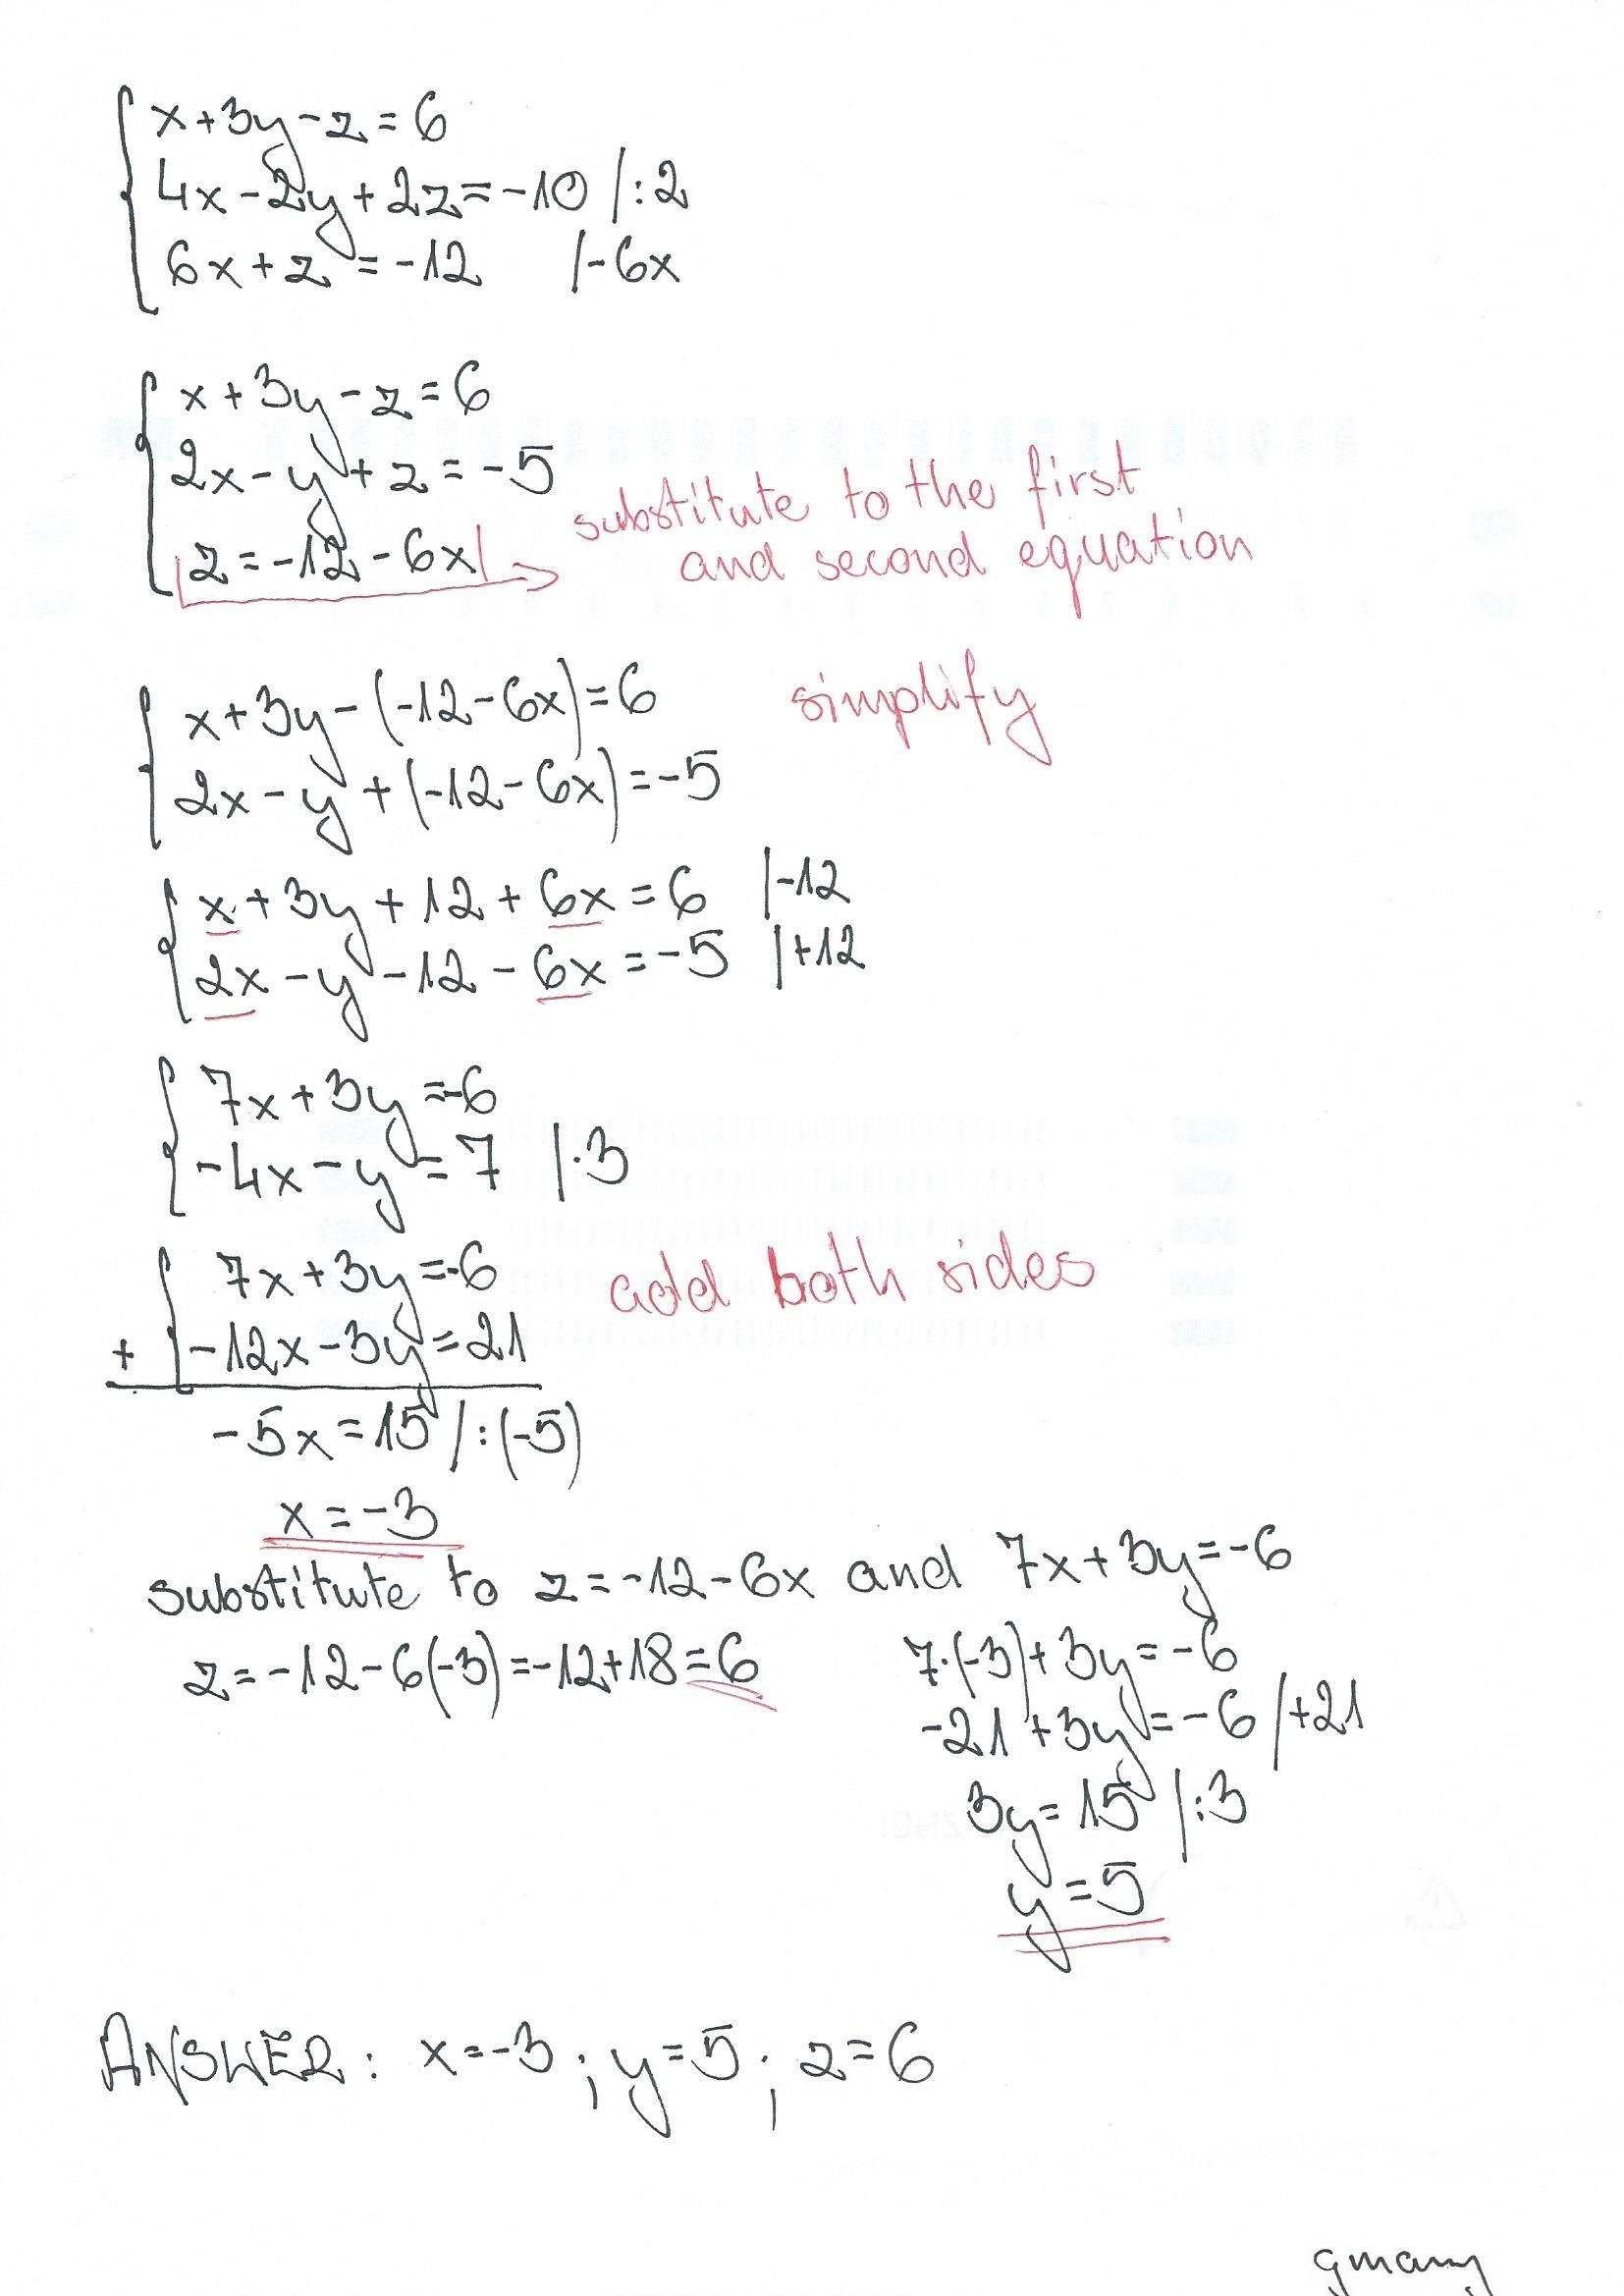 x+3y-z=6
4x-2y+2z=-10 /:2
6x+z=-12 /-6x
x+3y-z=6
2x-y+z=-5
z=-12-6x
substitute to the first
and second equation
x+3y-(-12-6x)=6 simplify
2x-y+(-12-6x)=-5
x+3y+12+6x=6 |-12
2x-y-12-6x=-5 |+12
7x+3y=-6
-4x-y=7 |·3
7x+3y=-6 add both sides
+ -12x-3y=21
-5x=15 /:(-5)
x=-3
substitute to z=-12-6x and 7x+3y=-6
z=-12-6(-3)=-12+18=6
7·(-3)+3y=-6
-21+3y=-6 /+21
3y=15 /:3
y=5
ANSWER: x=-3; y=5; z=6
gmany